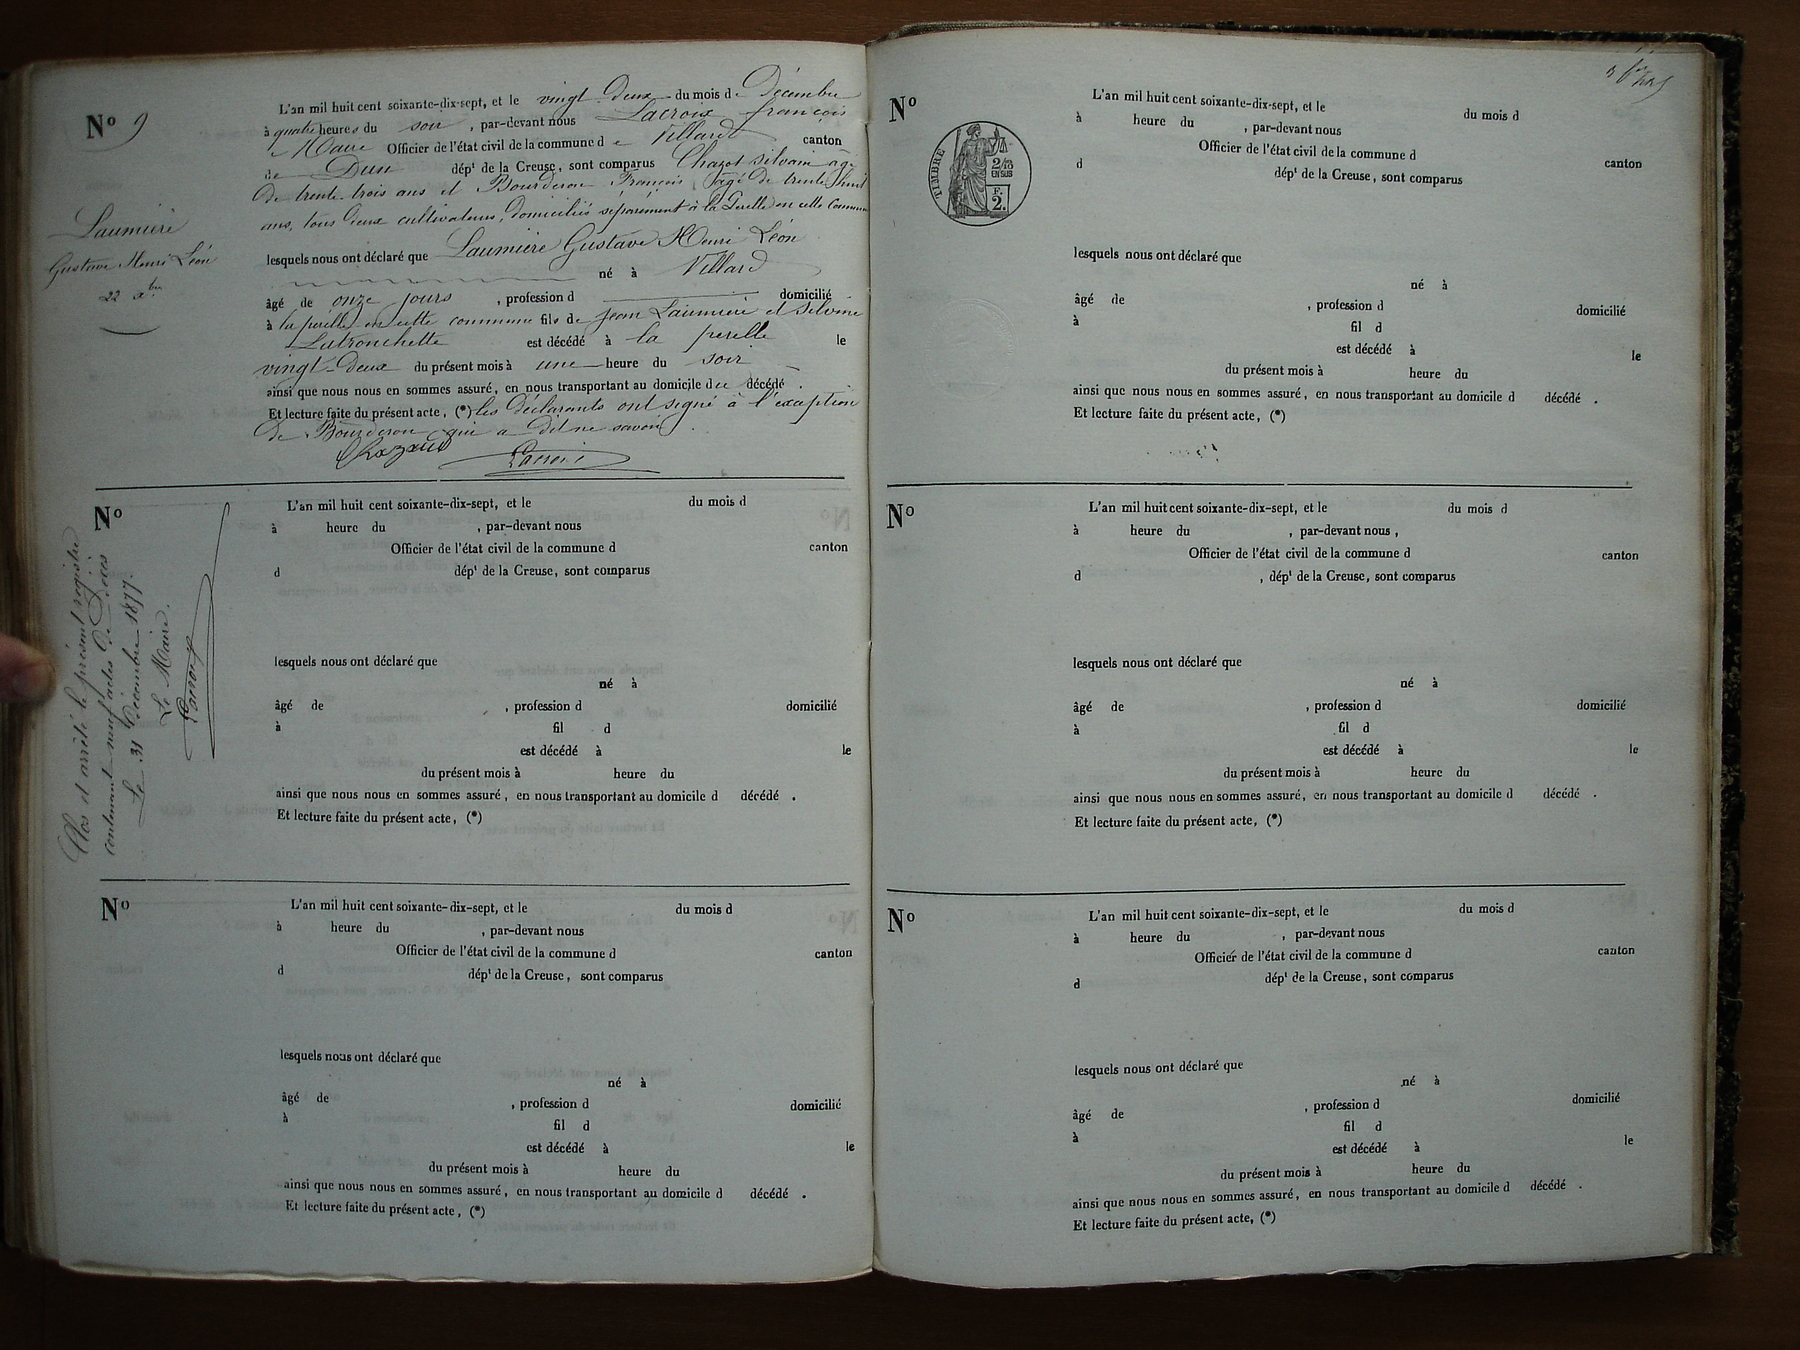 N° 9
Laumière
Gustave Henri Léon
22 Xbre
L'an mil huit cent soixante-dix-sept, et le vingt-deux du mois de Décembre
à quatre heures du soir, par-devant nous Lacroix françois
Maire Officier de l'état civil de la commune de Villard canton
de Dun dépt de la Creuse, sont comparus Chazot silvain âgé
de trente trois ans et Bourderon François, âgé de trente huit
ans, tous deux cultivateurs, domiciliés séparément à la Perelle en cette commune
lesquels nous ont déclaré que Laumière Gustave Henri Léon
né à Villard
âgé de onze jours, profession d domicilié
à la perelle en cette commune fils de jean Laumière et silvine
Latronchette est décédé à la perelle le
vingt-deux du présent mois à une heure du soir
ainsi que nous nous en sommes assuré, en nous transportant au domicile du décédé.
Et lecture faite du présent acte, (*) les déclarants ont signé à l'exception
de Bourderon qui a dit ne savoir.
Lacroix
N°
L'an mil huit cent soixante-dix-sept, et le du mois d
à heure du , par-devant nous
Officier de l'état civil de la commune d canton
d dépt de la Creuse, sont comparus
lesquels nous ont déclaré que
né à
âgé de , profession d domicilié
à fil d
est décédé à le
du présent mois à heure du
ainsi que nous nous en sommes assuré, en nous transportant au domicile d décédé .
Et lecture faite du présent acte, (*)
Clos et arrêté le présent registre
contenant neuf actes de Décès
Le 31 Décembre 1877.
Le Maire
Lacroix
N°
L'an mil huit cent soixante-dix-sept, et le du mois d
à heure du , par-devant nous
Officier de l'état civil de la commune d canton
d dépt de la Creuse, sont comparus
lesquels nous ont déclaré que
né à
âgé de , profession d domicilié
à fil d
est décédé à le
du présent mois à heure du
ainsi que nous nous en sommes assuré, en nous transportant au domicile d décédé .
Et lecture faite du présent acte, (*)
N°
TIMBRE
2/10
EN SUS
F.
2.
L'an mil huit cent soixante-dix-sept, et le du mois d
à heure du , par-devant nous
Officier de l'état civil de la commune d
d dépt de la Creuse, sont comparus canton
lesquels nous ont déclaré que
né à
âgé de , profession d domicilié
à fil d
est décédé à le
du présent mois à heure du
ainsi que nous nous en sommes assuré, en nous transportant au domicile d décédé .
Et lecture faite du présent acte, (*)
N°
L'an mil huit cent soixante-dix-sept, et le du mois d
à heure du , par-devant nous ,
Officier de l'état civil de la commune d canton
d , dépt de la Creuse, sont comparus
lesquels nous ont déclaré que
né à
âgé de , profession d domicilié
à fil d
est décédé à le
du présent mois à heure du
ainsi que nous nous en sommes assuré, en nous transportant au domicile d décédé .
Et lecture faite du présent acte, (*)
N°
L'an mil huit cent soixante-dix-sept, et le du mois d
à heure du , par-devant nous
Officier de l'état civil de la commune d canton
d dépt de la Creuse, sont comparus
lesquels nous ont déclaré que
né à
âgé de , profession d domicilié
à fil d
est décédé à le
du présent mois à heure du
ainsi que nous nous en sommes assuré, en nous transportant au domicile d décédé .
Et lecture faite du présent acte, (*)